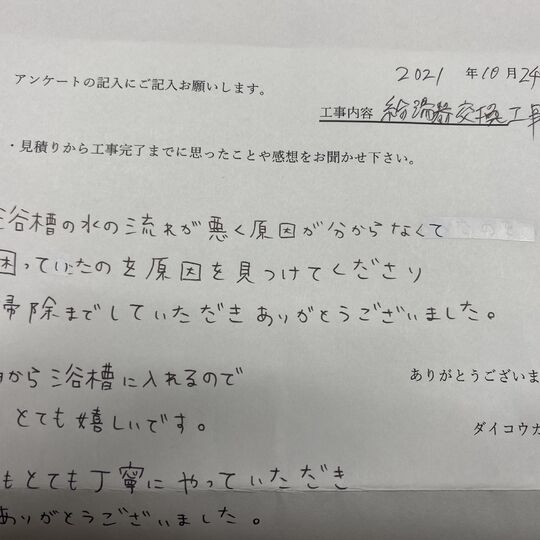 アンケートの記入にご記入お願いします。
2021 年10月24
工事内容 給湯器交換工事
・見積りから工事完了までに思ったことや感想をお聞かせ下さい。
浴槽の水の流れが悪く原因が分からなくて
困っていたのを原因を見つけてくださり
掃除までしていただきありがとうございました。
から浴槽に入れるので
とても嬉しいです。
もとても丁寧にやっていただき
ありがとうございました。
ありがとうございま
ダイコウカ